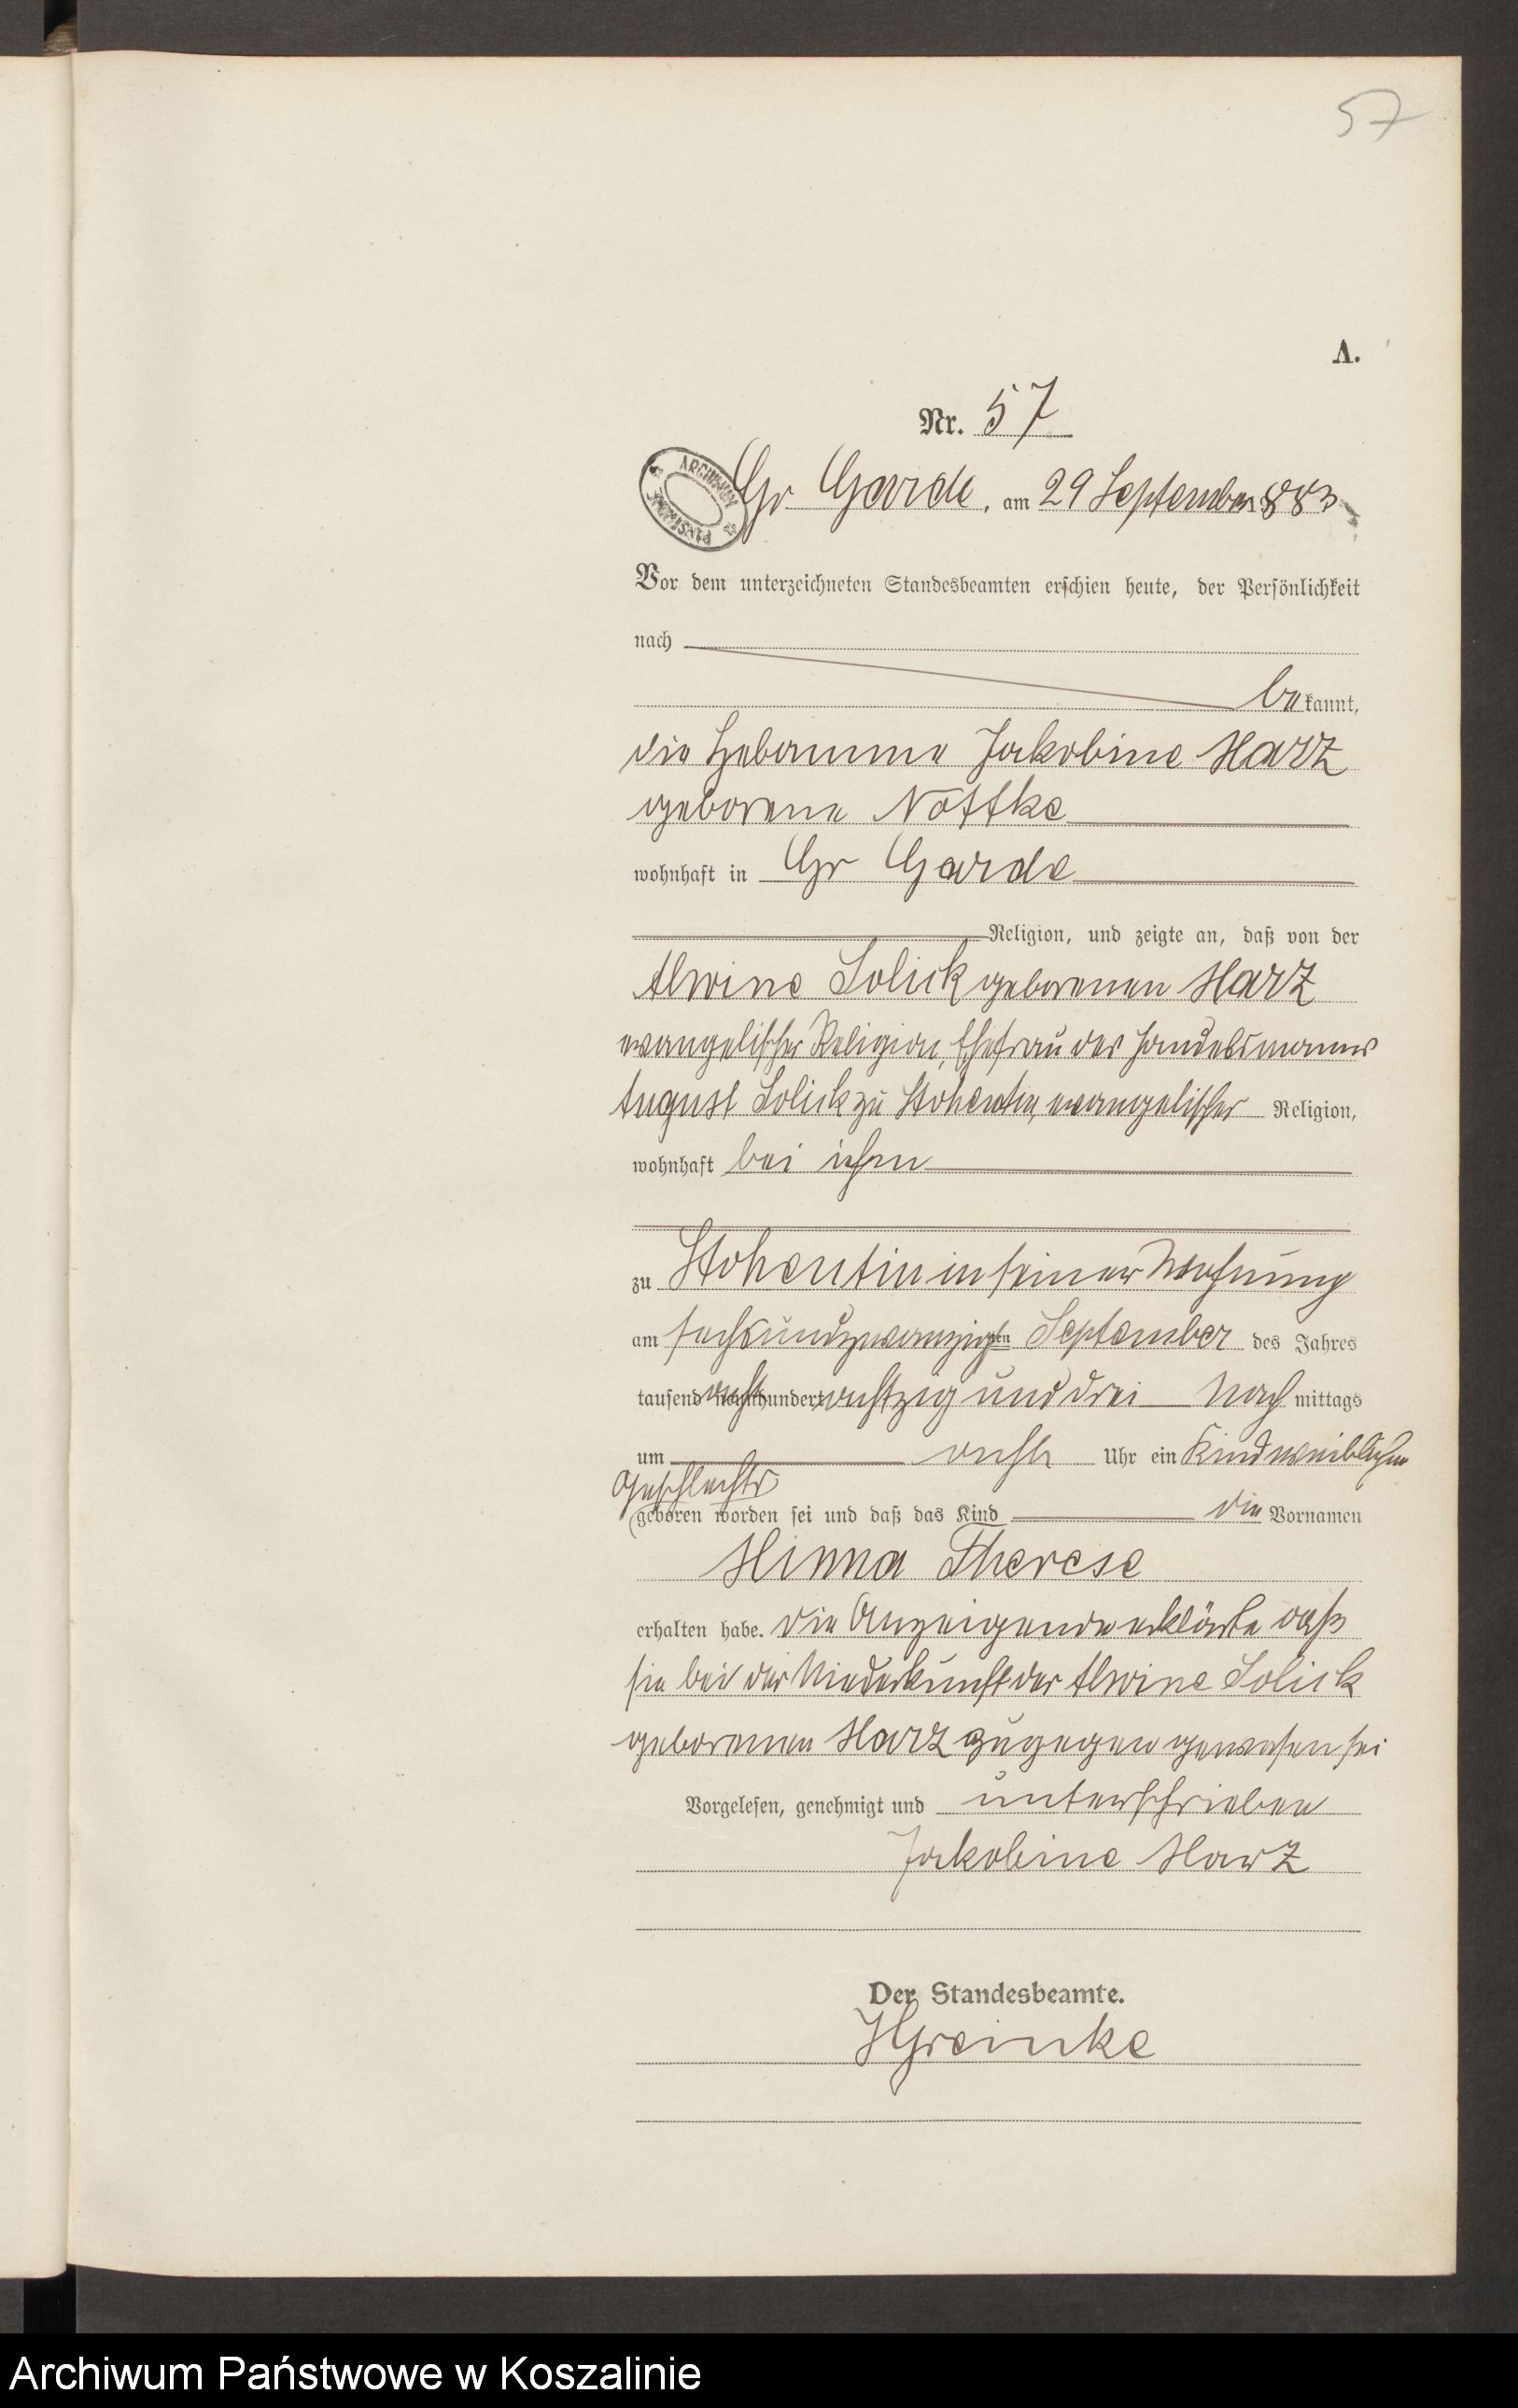 57
A.
Nr. 57
ARCHIWUM PAŃSTWOWE
Gr Garde, am 29 September 1883
Vor dem unterzeichneten Standesbeamten erschien heute, der Persönlichkeit
nach
bekannt,
die Hebamme Jakobine Harz
geborene Nottke
wohnhaft in Gr Garde
Religion, und zeigte an, daß von der
Alwine Solick geborenen Harz
evangelischer Religion, Ehefrau des Handelsmannes
August Solick zu Stohentin, evangelischer Religion,
wohnhaft bei ihm
zu Stohentin in seiner Wohnung
am sechsundzwanzigsten September des Jahres
tausend acht hundert achtzig und drei Nachmittags
um acht Uhr ein Kind weiblichen
Geschlechts
geboren worden sei und daß das Kind die Vornamen
Minna Therese
erhalten habe. Die Anzeigende erklärte daß
sie bei der Niederkunft der Alwine Solick
geborenen Harz zugegen gewesen sei
Vorgelesen, genehmigt und unterschrieben
Jakobine Harz
Der Standesbeamte.
HGreinke
Archiwum Państwowe w Koszalinie